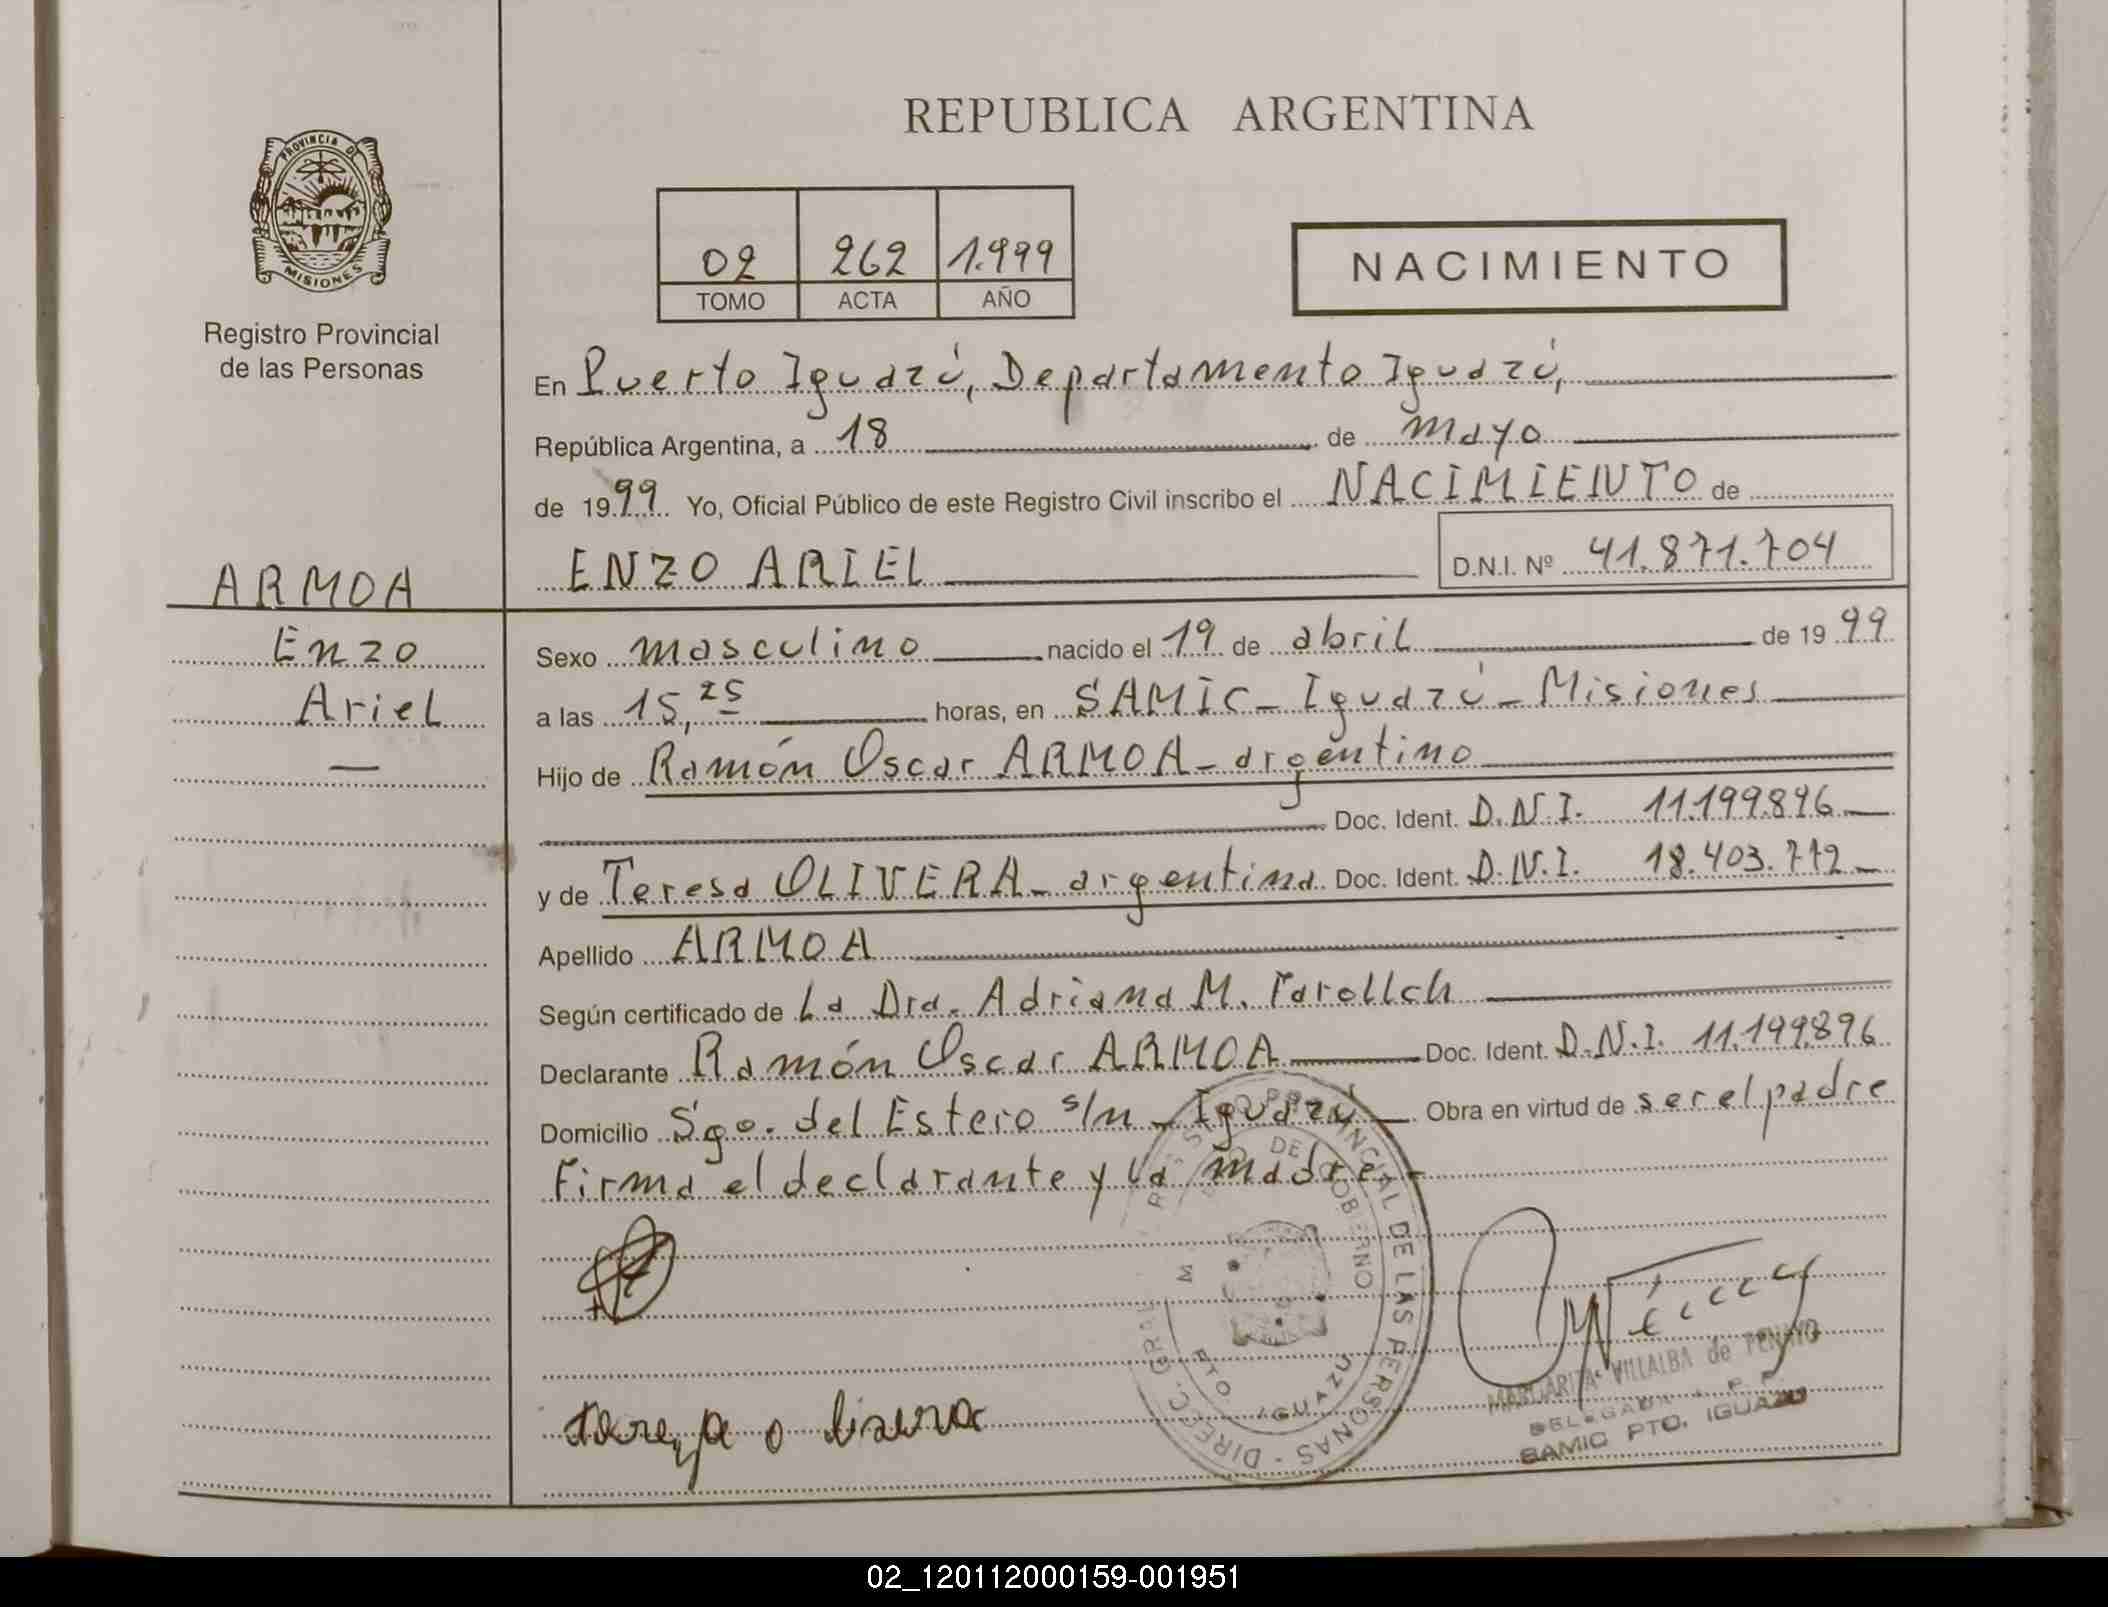 REPUBLICA ARGENTINA
PROVINCIA DE
MISIONES
Registro Provincial
de las Personas
02 262 1.999
TOMO ACTA AÑO
NACIMIENTO
En Puerto Iguazú, Departamento Iguazú,
República Argentina, a 18 de mayo
de 1999 Yo, Oficial Público de este Registro Civil inscribo el NACIMIENTO de
ENZO ARIEL D.N.I. Nº 41.871.704
ARMOA
Enzo
Ariel
Sexo masculino nacido el 19 de abril de 1999
a las 15,25 horas, en SAMIC - Iguazú - Misiones
Hijo de Ramón Oscar ARMOA - argentino
Doc. Ident. D.N.I. 11.199.896
y de Teresa OLIVERA - argentina Doc. Ident. D.N.I. 18.403.772
Apellido ARMOA
Según certificado de La Dra. Adriana M.
Declarante Ramón Oscar ARMOA Doc. Ident. D.N.I. 11.199.896
Domicilio Sgo. del Estero s/n - Iguazú Obra en virtud de ser el padre
Firma el declarante y la madre -
PROVINCIAL DE LAS PERSONAS - DIRECC. GRAL
DE GOBIERNO
PTO. IGUAZU
MARGARITA VILLALBA de
SAMIC PTO. IGUAZU
02_120112000159-001951